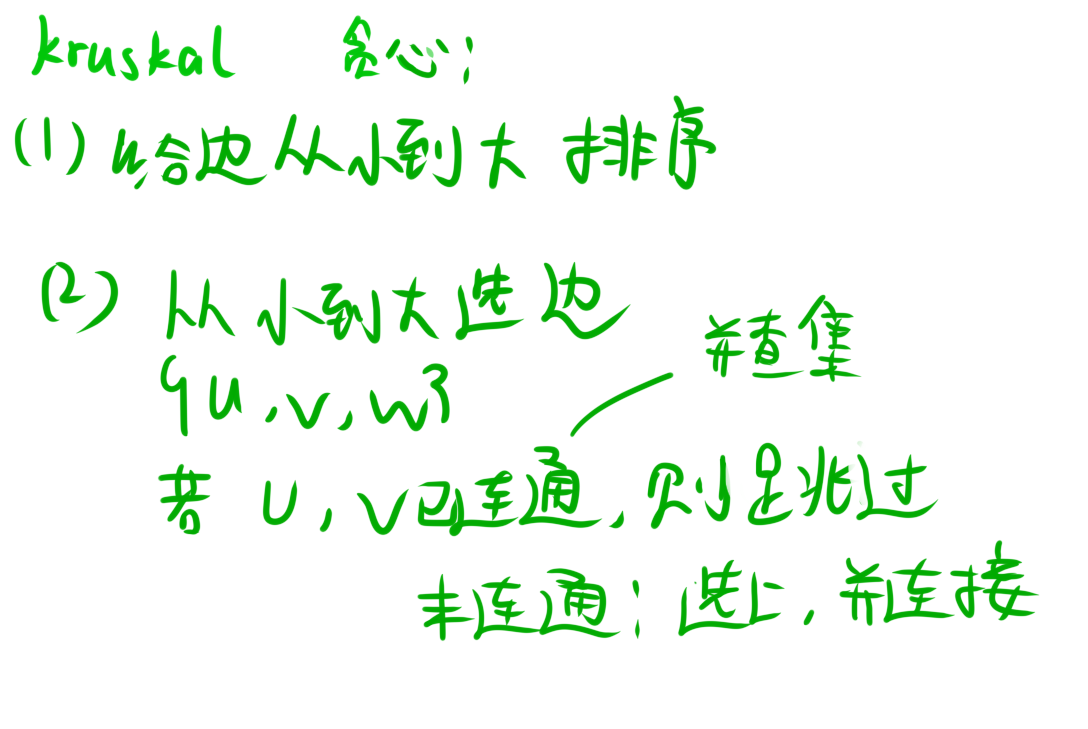 kruskal 贪心:
(1) 给边从小到大 排序
(2) 从小到大选边
{u,v,w}
并查集
若 u,v已连通,则跳过
未连通:选上,并连接